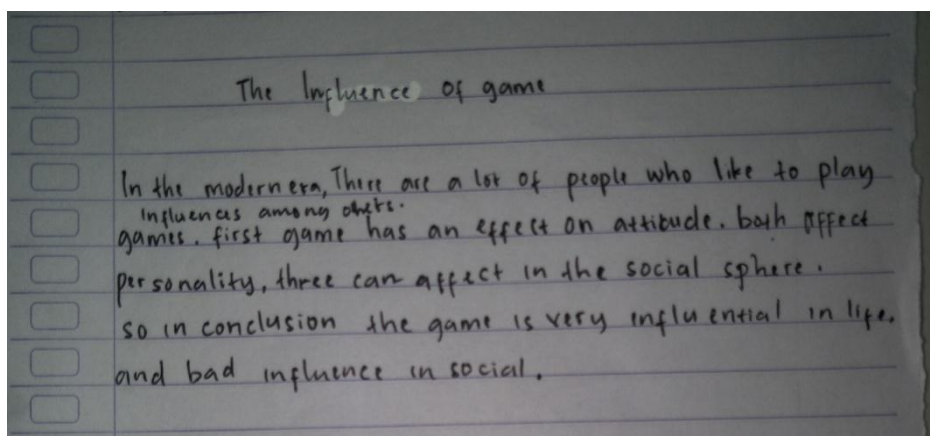 The Influence of game
In the modern era, There are a lot of people who like to play
influences among others.
games. first game has an effect on attitude. both affect
personality, three can affect in the social sphere.
so in conclusion the game is very influential in life.
and bad influence in social.